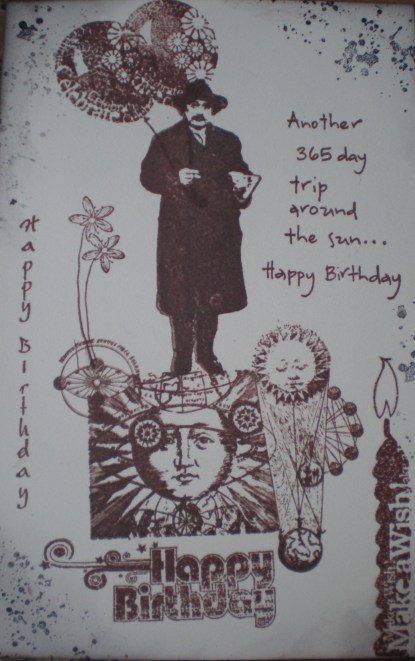 Another
365 day
trip
around
the sun...
Happy Birthday
Happy Birthday
Happy
Birthday
Make a Wish!